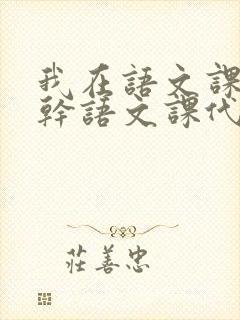 我在語文課
幹語文課代
莊善忠